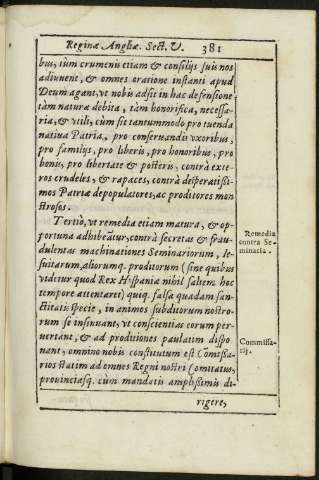 Reginæ Angliæ. Sect. V. 381
bus, tùm crumenis etiam & consilijs suis nos
adiuuent, & omnes oratione instanti apud
Deum agant, vt nobis adsit in hac defensione
tàm naturæ debita, tàm honorifica, necessa-
ria, & vtili, cùm sit tantummodo pro tuenda
natiua Patria, pro conseruandis vxoribus,
pro familijs, pro liberis, pro honoribus, pro
bonis, pro libertate & posteris, contrà exte-
ros crudeles, & rapaces, contrà desperatissi-
mos Patriæ depopulatores, ac proditores mon
strosos.
Tertiò, vt remedia etiam matura, & op-
portuna adhibeãtur, contrà secretas & frau-
dulentas machinationes Seminariorum, Ie-
suitarum, aliorumq. proditorum (sine quibus
videtur quod Rex Hispania nihil saltem hoc
tempore attentaret) quiq. falsa quadam san-
ctitatis specie, in animos subditorum nostro-
rum se insinuant, vt conscientias eorum per-
uertant, & ad proditiones paulatim dispo
nant, omnino nobis constitutum est Comissa-
rios statim ad omnes Regni nostri Comitatus,
prouinciasq. cùm mandatis amplissimis di-
rigere,
Remedia
contra Se-
minaria.
Commissa-
rij.